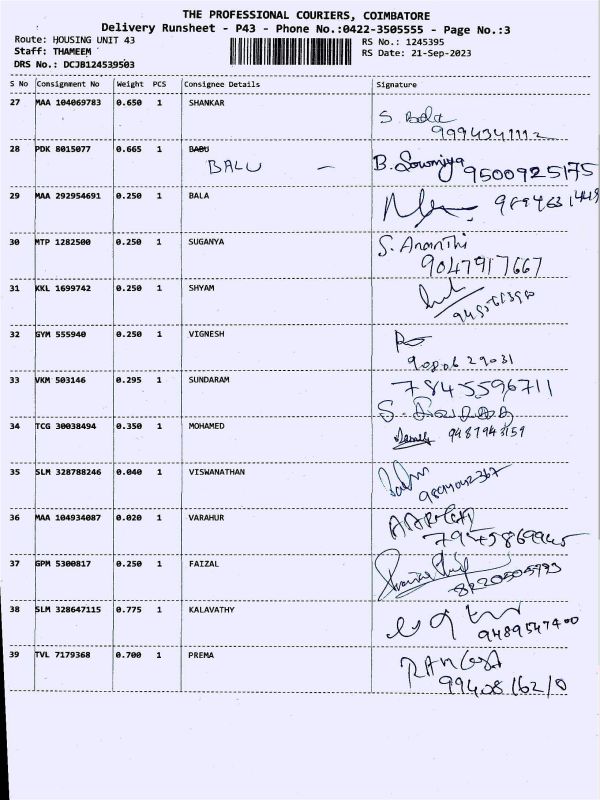 THE PROFESSIONAL COURIERS, COIMBATORE
Delivery Runsheet - P43 - Phone No.:0422-3505555 - Page No.:3
Route: HOUSING UNIT 43
RS No.: 1245395
Staff: THAMEEM
RS Date: 21-Sep-2023
DRS No.: DCJB124539503
S No Consignment No Weight PCS Consignee Details Signature
27 MAA 104069783 0.650 1 SHANKAR
S. Bala
9994341112
28 PDK 8015077 0.665 1 BABU
BALU - B. Sowmiya 9500925175
29 MAA 292954691 0.250 1 BALA
30 MTP 1282500 0.250 1 SUGANYA S. Ananthi
9047917667
31 KKL 1699742 0.250 1 SHYAM
32 GYM 555940 0.250 1 VIGNESH
33 VKM 503146 0.295 1 SUNDARAM 7845596711
34 TCG 30038494 0.350 1 MOHAMED 9487943159
35 SLM 328788246 0.040 1 VISWANATHAN
36 MAA 104934087 0.020 1 VARAHUR
37 GPM 5300817 0.250 1 FAIZAL
8220505993
38 SLM 328647115 0.775 1 KALAVATHY
9489547400
39 TVL 7179368 0.700 1 PREMA
9940816210